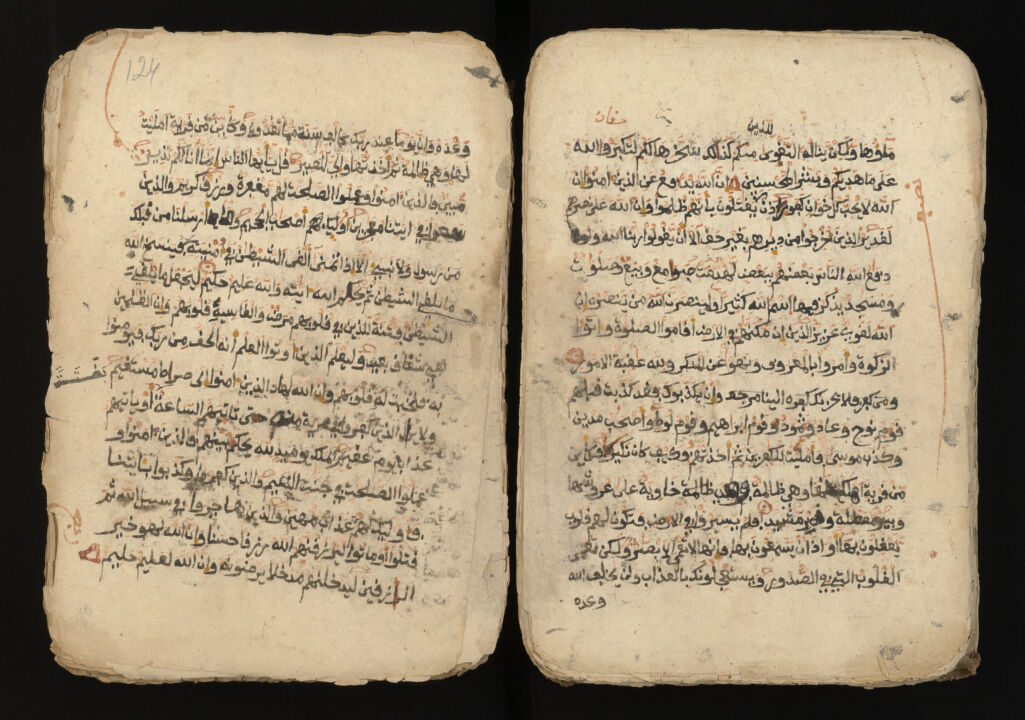 ماؤها ولكن يناله التقوى منكم كذلك سخرها لكم لتكبروا الله
على ما هديكم وبشر المحسنين ان الله يدفع عن الذين امنوا ان
الله لا يحب كل خوان كفور اذن للذين يقتلون بانهم ظلموا وان الله على نصرهم
لقدير الذين اخرجوا من ديرهم بغير حق الا ان يقولوا ربنا الله ولولا
دفع الله الناس بعضهم ببعض لهدمت صومع وبيع وصلوت
ومسجد يذكر فيها اسم الله كثيرا ولينصرن الله من ينصره ان
الله لقوي عزيز الذين ان مكنهم في الارض اقاموا الصلوة واتوا
الزكوة وامروا بالمعروف ونهوا عن المنكر ولله عقبة الامور
ومن كفر فلا يحزنك كفره الينا مرجعهم وان يكذبوك فقد كذبت قبلهم
قوم نوح وعاد وثمود وقوم ابراهيم وقوم لوط واصحب مدين
وكذب موسى فامليت للكفرين ثم اخذتهم فكيف كان نكير فكاين
من قرية اهلكنها وهي ظالمة فهي خاوية على عروشها
وبير معطلة وقصر مشيد افلم يسيروا في الارض فتكون لهم قلوب
يعقلون بها او اذان يسمعون بها فانها لا تعمى الابصر ولكن تعمى
القلوب التي في الصدور ويستعجلونك بالعذاب ولن يخلف الله
وعده
124
وعده وان يوما عند ربك كالف سنة مما تعدون وكاين من قرية امليت
لها وهي ظالمة ثم اخذتها والي المصير قل يايها الناس انما انا لكم نذير
مبين فالذين امنوا وعملوا الصلحت لهم مغفرة ورزق كريم والذين
سعوا في ايتنا معجزين اوليك هم اصحب الجحيم وما ارسلنا من قبلك
من رسول ولا نبيء الا اذا تمنى القى الشيطن في امنيته فينسخ الله
ما يلقي الشيطن ثم يحكم الله ايته والله عليم حكيم ليجعل ما يلقي
الشيطن فتنة للذين في قلوبهم مرض والقاسية قلوبهم وان الظلمين
لفي شقاق بعيد وليعلم الذين اوتوا العلم انه الحق من ربك فيومنوا
به فتخبت له قلوبهم وان الله لهاد الذين امنوا الى صراط مستقيم
ولا يزال الذين كفروا في مرية منه حتى تاتيهم الساعة بغتة او ياتيهم
عذاب يوم عقيم الملك يوميذ لله يحكم بينهم فالذين امنوا و
عملوا الصلحت في جنت النعيم والذين كفروا وكذبوا بايتنا
فاوليك لهم عذاب مهين والذين هاجروا في سبيل الله ثم
قتلوا او ماتوا ليرزقنهم الله رزقا حسنا وان الله لهو خير
الرزقين ليدخلنهم مدخلا يرضونه وان الله لعليم حليم